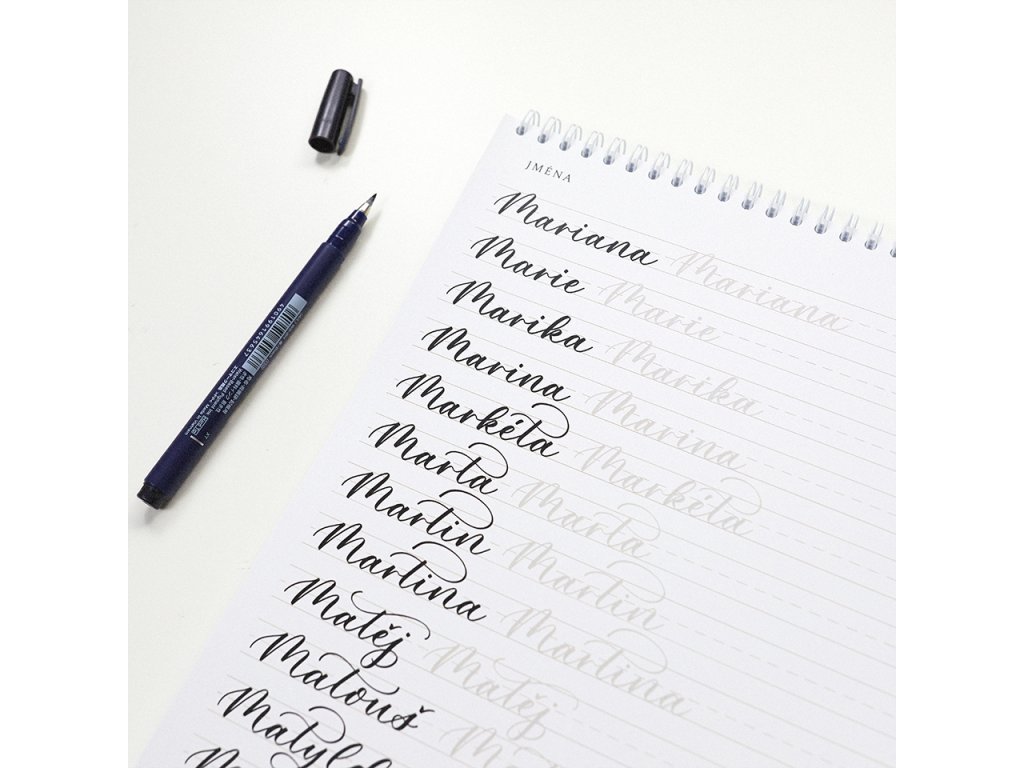 JMÉNA
Mariana Mariana
Marie Marie
Marika Marika
Marina Marina
Markéta Markéta
Marta Marta
Martin Martin
Martina Martina
Matěj Matěj
Matouš
4901991645637